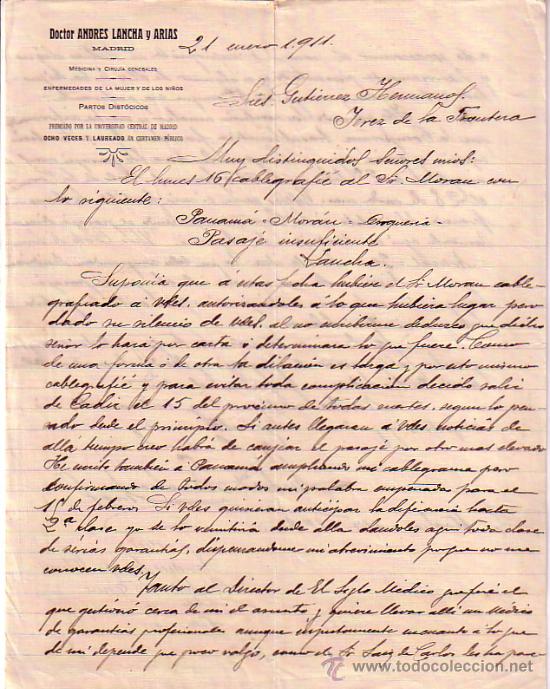 Doctor ANDRES LANCHA y ARIAS
MADRID
MEDICINA Y CIRUJÍA GENERALES
ENFERMEDADES DE LA MUJER Y DE LOS NIÑOS
PARTOS DISTÓCICOS
PREMIADO POR LA UNIVERSIDAD CENTRAL DE MADRID
OCHO VECES Y LAUREADO EN CERTAMEN PÚBLICO
21 enero 1911.
Sres Gutierrez Hermanos
Jerez de la Frontera
Muy distinguidos Señores mios:
El lunes 16 cablegrafié al Sr. Moran con
lo siguiente:
Panamá - Morán - Drogueria -
Pasaje insuficiente
Lancha.
Suponia que á estas fecha hubiera el Sr Moran cable-
grafiado á vdes. autorizandoles á lo que hubiera lugar pero
dado su silencio de vdes. al no escribirme deduzco que dicho
señor lo hará por carta ó determinara lo que fuere. Como
de una forma ó de otra la dilación es larga y por eso mismo
cablegrafié y para evitar toda complicacion decido salir
de Cadiz el 15 del proximo de todas suertes, segun lo pen-
sado desde el principio. Si antes llegaran á vdes noticias de
allá tiempo creo habrá de canjear el pasaje por otro mas elevado
He escrito tambien á Panamá ampliando mi cablegrama pero
confirmando de todos modos mi palabra empeñada para el
15 de febrero. Si vdes quisieran anticipar la diferencia hasta
2ª clase yo se lo remitiria desde alla dandoles aqui toda clase
de serias garantias, dispensandome mi atrevimiento porque no me
conocen vdes.
Tanto al Director de El Siglo Medico que fué el
que gestionó cerca de mi el asunto y quiere llevar allí un médico
de garantias profesionales aunque injustamente en cuanto á lo que
de mi depende que poco valgo, como de Sr Saiz de Carlos les ha pare
todocoleccion.net